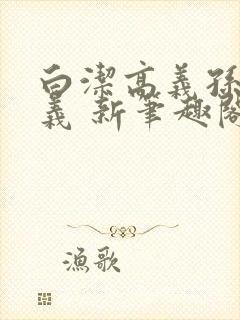 白潔高義孫
義 新筆趣閣
漁歌